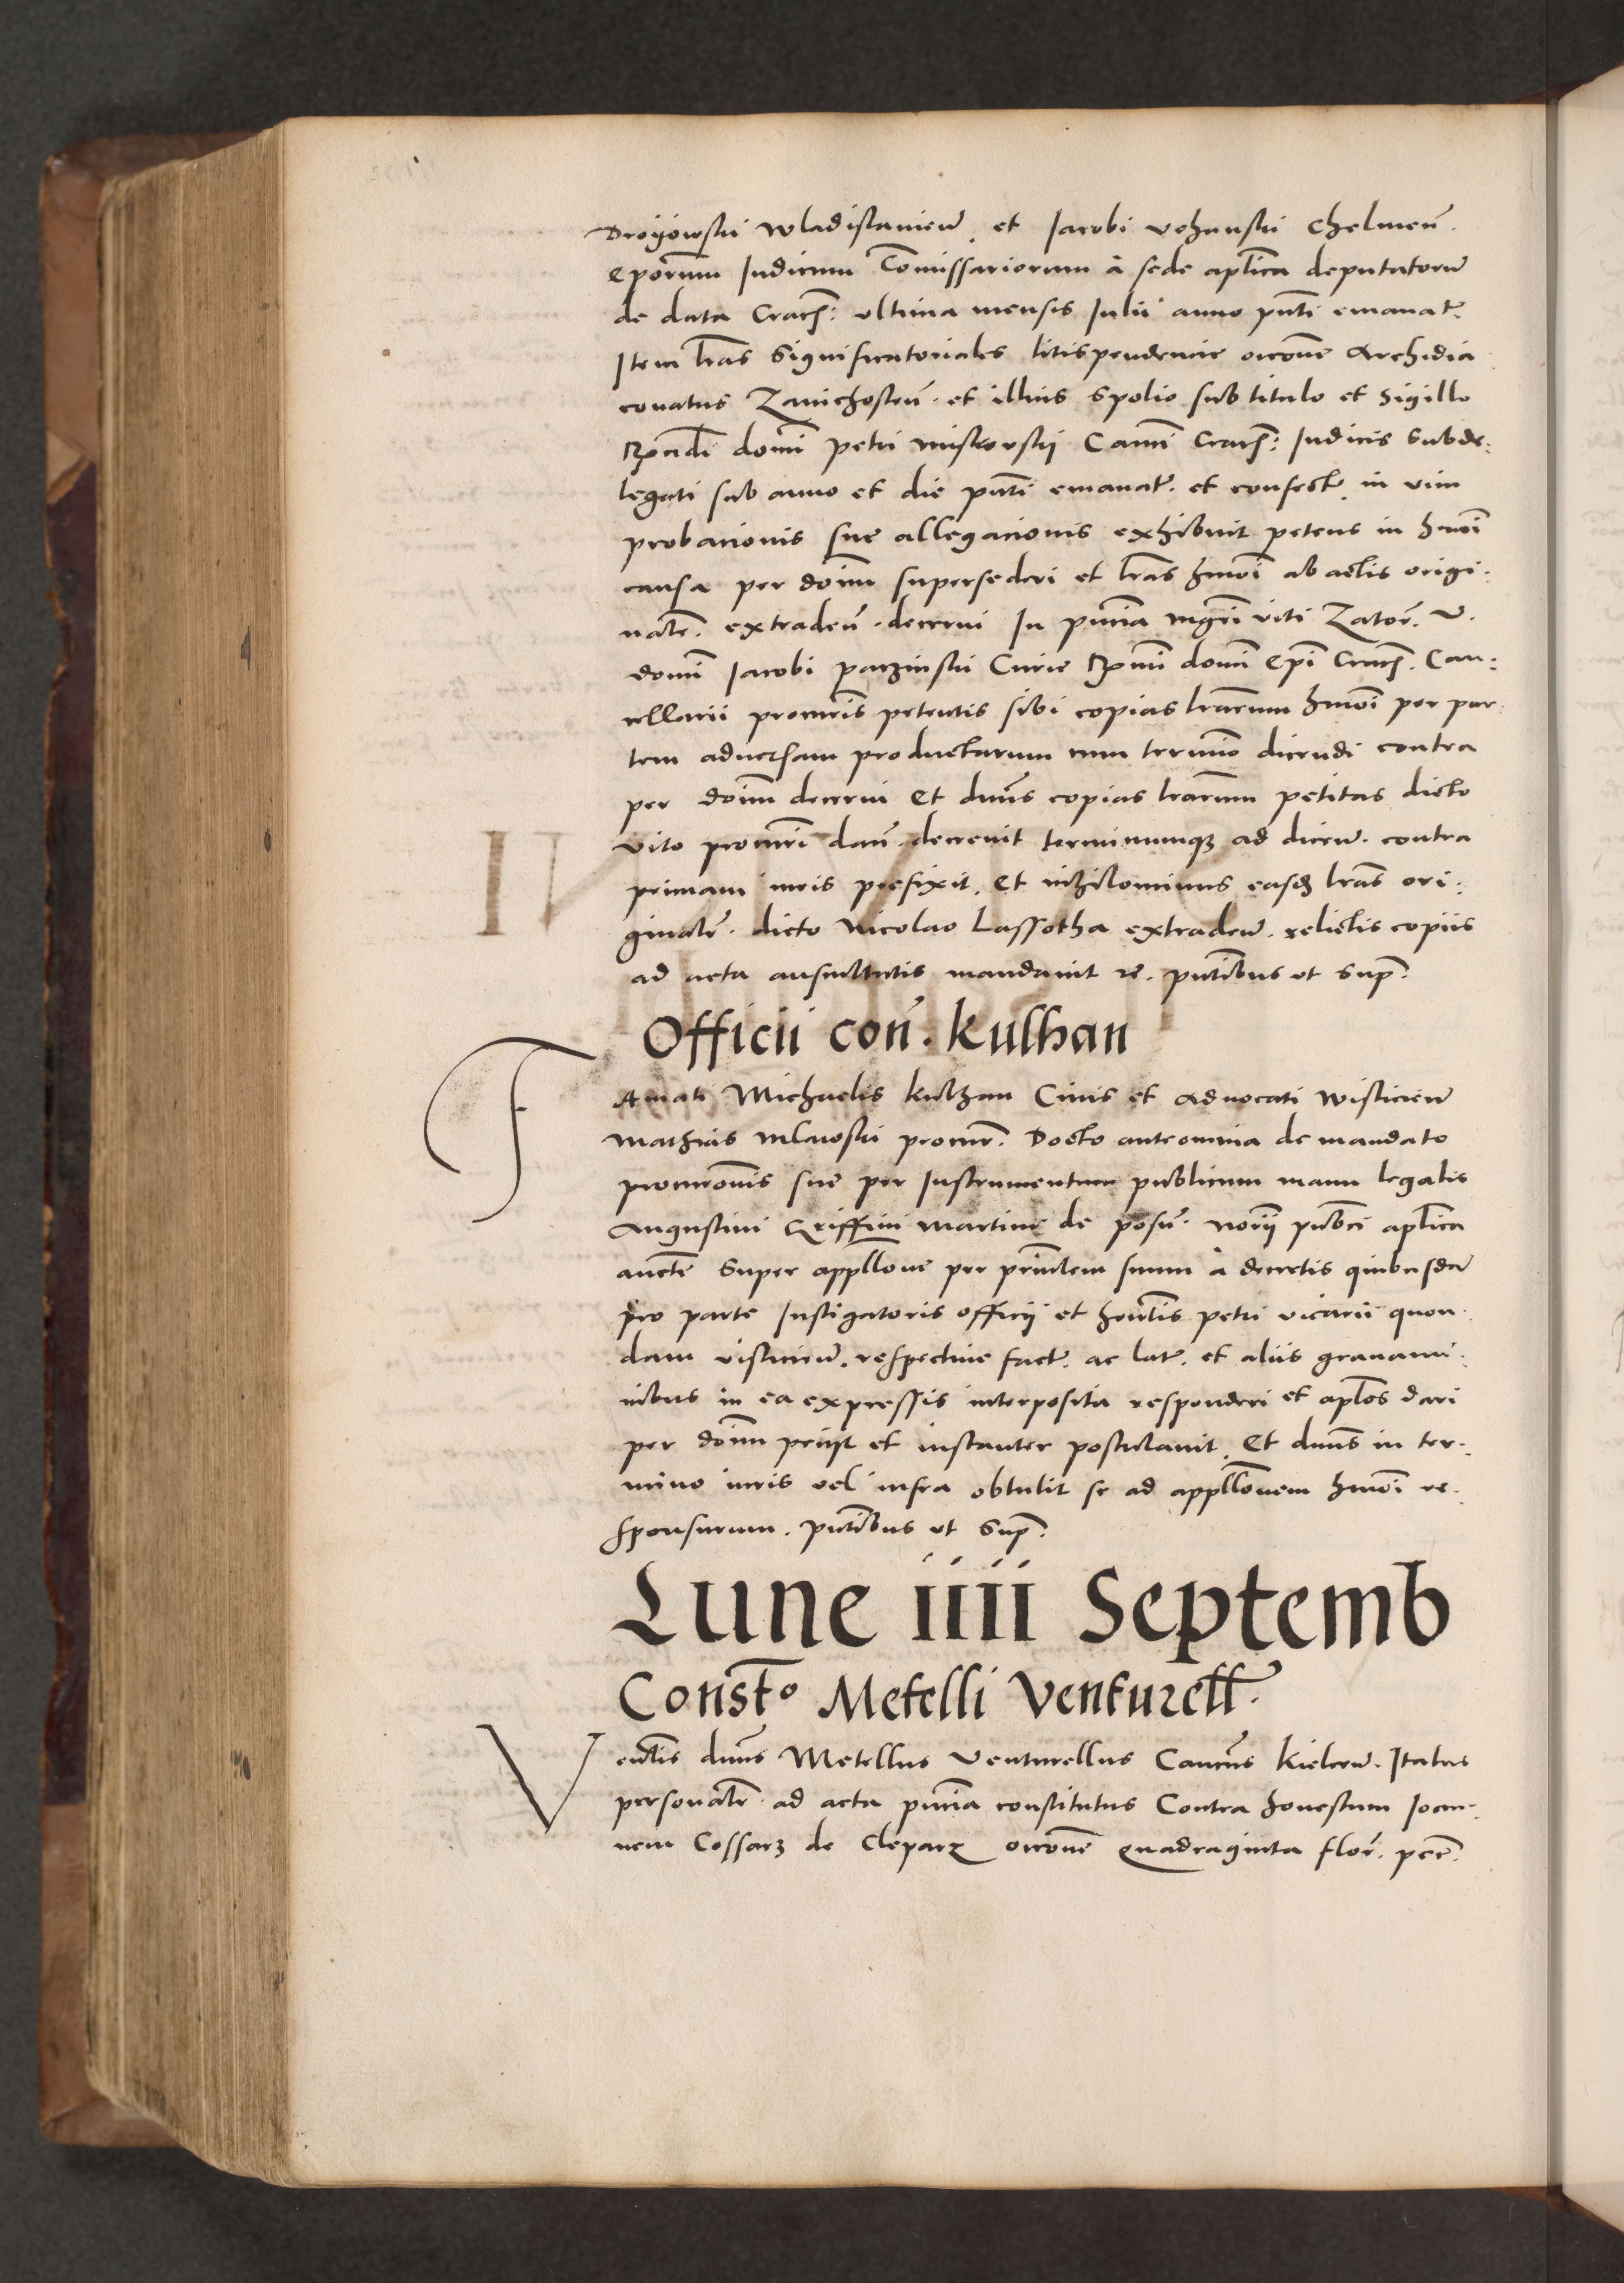 Droyowskii Wladislavien̄. et Jacobi Vchanskii Chelmen̄.
ep̄orum Judicum Com̄issariorum à sede apl̄ica deputatorū
de data Crac̄: vltima mensis Julii anno pn̄ti emanat̄.
Item l̄ras Significatoriales litispendencie occ̄one Archidia
conatus Zavichosten̄. et illius spolio sub titulo et sigillo
R̄ndi domi̅ Petri Miskowskij Can̄ci Crac̄: Judicis Subde:
legati sub anno et die pn̄ti emanat̄. et confect̄. in vim
probacionis sue allegacionis exhibuit petens in hm̄oi
causa per doim̄ supersederi et l̄ras hm̄oi ab actis origi:
nalr̄. extraden̄. decerni In pn̄cia mgr̄i Viti Zator̄. V.
domi̅ Jacobi Paczinskii Curie R̄mi domi̅ Ep̄i Crac̄. Can:
cellarii procur̄is petentis sibi copias l̄rarum hm̄oi per par:
tem adversam productarum cum termino dicendi contra
per doim̄ decerni Et dn̄us copias l̄rarum petitas dicto
Vito procur̄i dan̄. decrevit terminumq ad dicen̄. contra
primam iuris prefixit. Et nihilominus easd l̄ras ori:
ginalr̄. dicto Nicolao Lassotha extraden̄. relictis copiis
ad acta auscultatis mandavit rc̄. pn̄tibus vt sup̄.
Officii con̄. Kulhan
Famati Michaelis Kulhan Civis et advocati Wislicien̄
Mathias procur̄. Docto anteomnia de mandato
procurac̄onis sue per Instrumentum publicum manu legalis
Augustini Griffini Martini de Posn̄. nor̄ii pub̄ci apl̄ica
aucte̅ super appl̄lone per prin̄lem suum à decretis quibusdā
pro parte Instigatoris officii et hon̄lis Petri vicarii quon:
dam vislicien̄. respective fact̄. ac lat̄. et aliis gravami:
nibus in ea expressis interposita responderi et apl̄os dari
per doim̄ petiit et instanter postulavit. Et dn̄us in ter:
mino iuris vel infra obtulit se ad appl̄lonem hm̄oi re:
sponsurum. pn̄tibus vt sup̄.
Lune iiii Septemb
Const̄o Metelli Venturell̄.
Ven̄lis dn̄us Metellus Venturellus Can̄cus Kielcen̄. Italus
personalr̄. ad acta pn̄cia constitutus Contra honestum Joan:
nem Cossarz de Cleparz occ̄one quadraginta flor̄. pec̄.